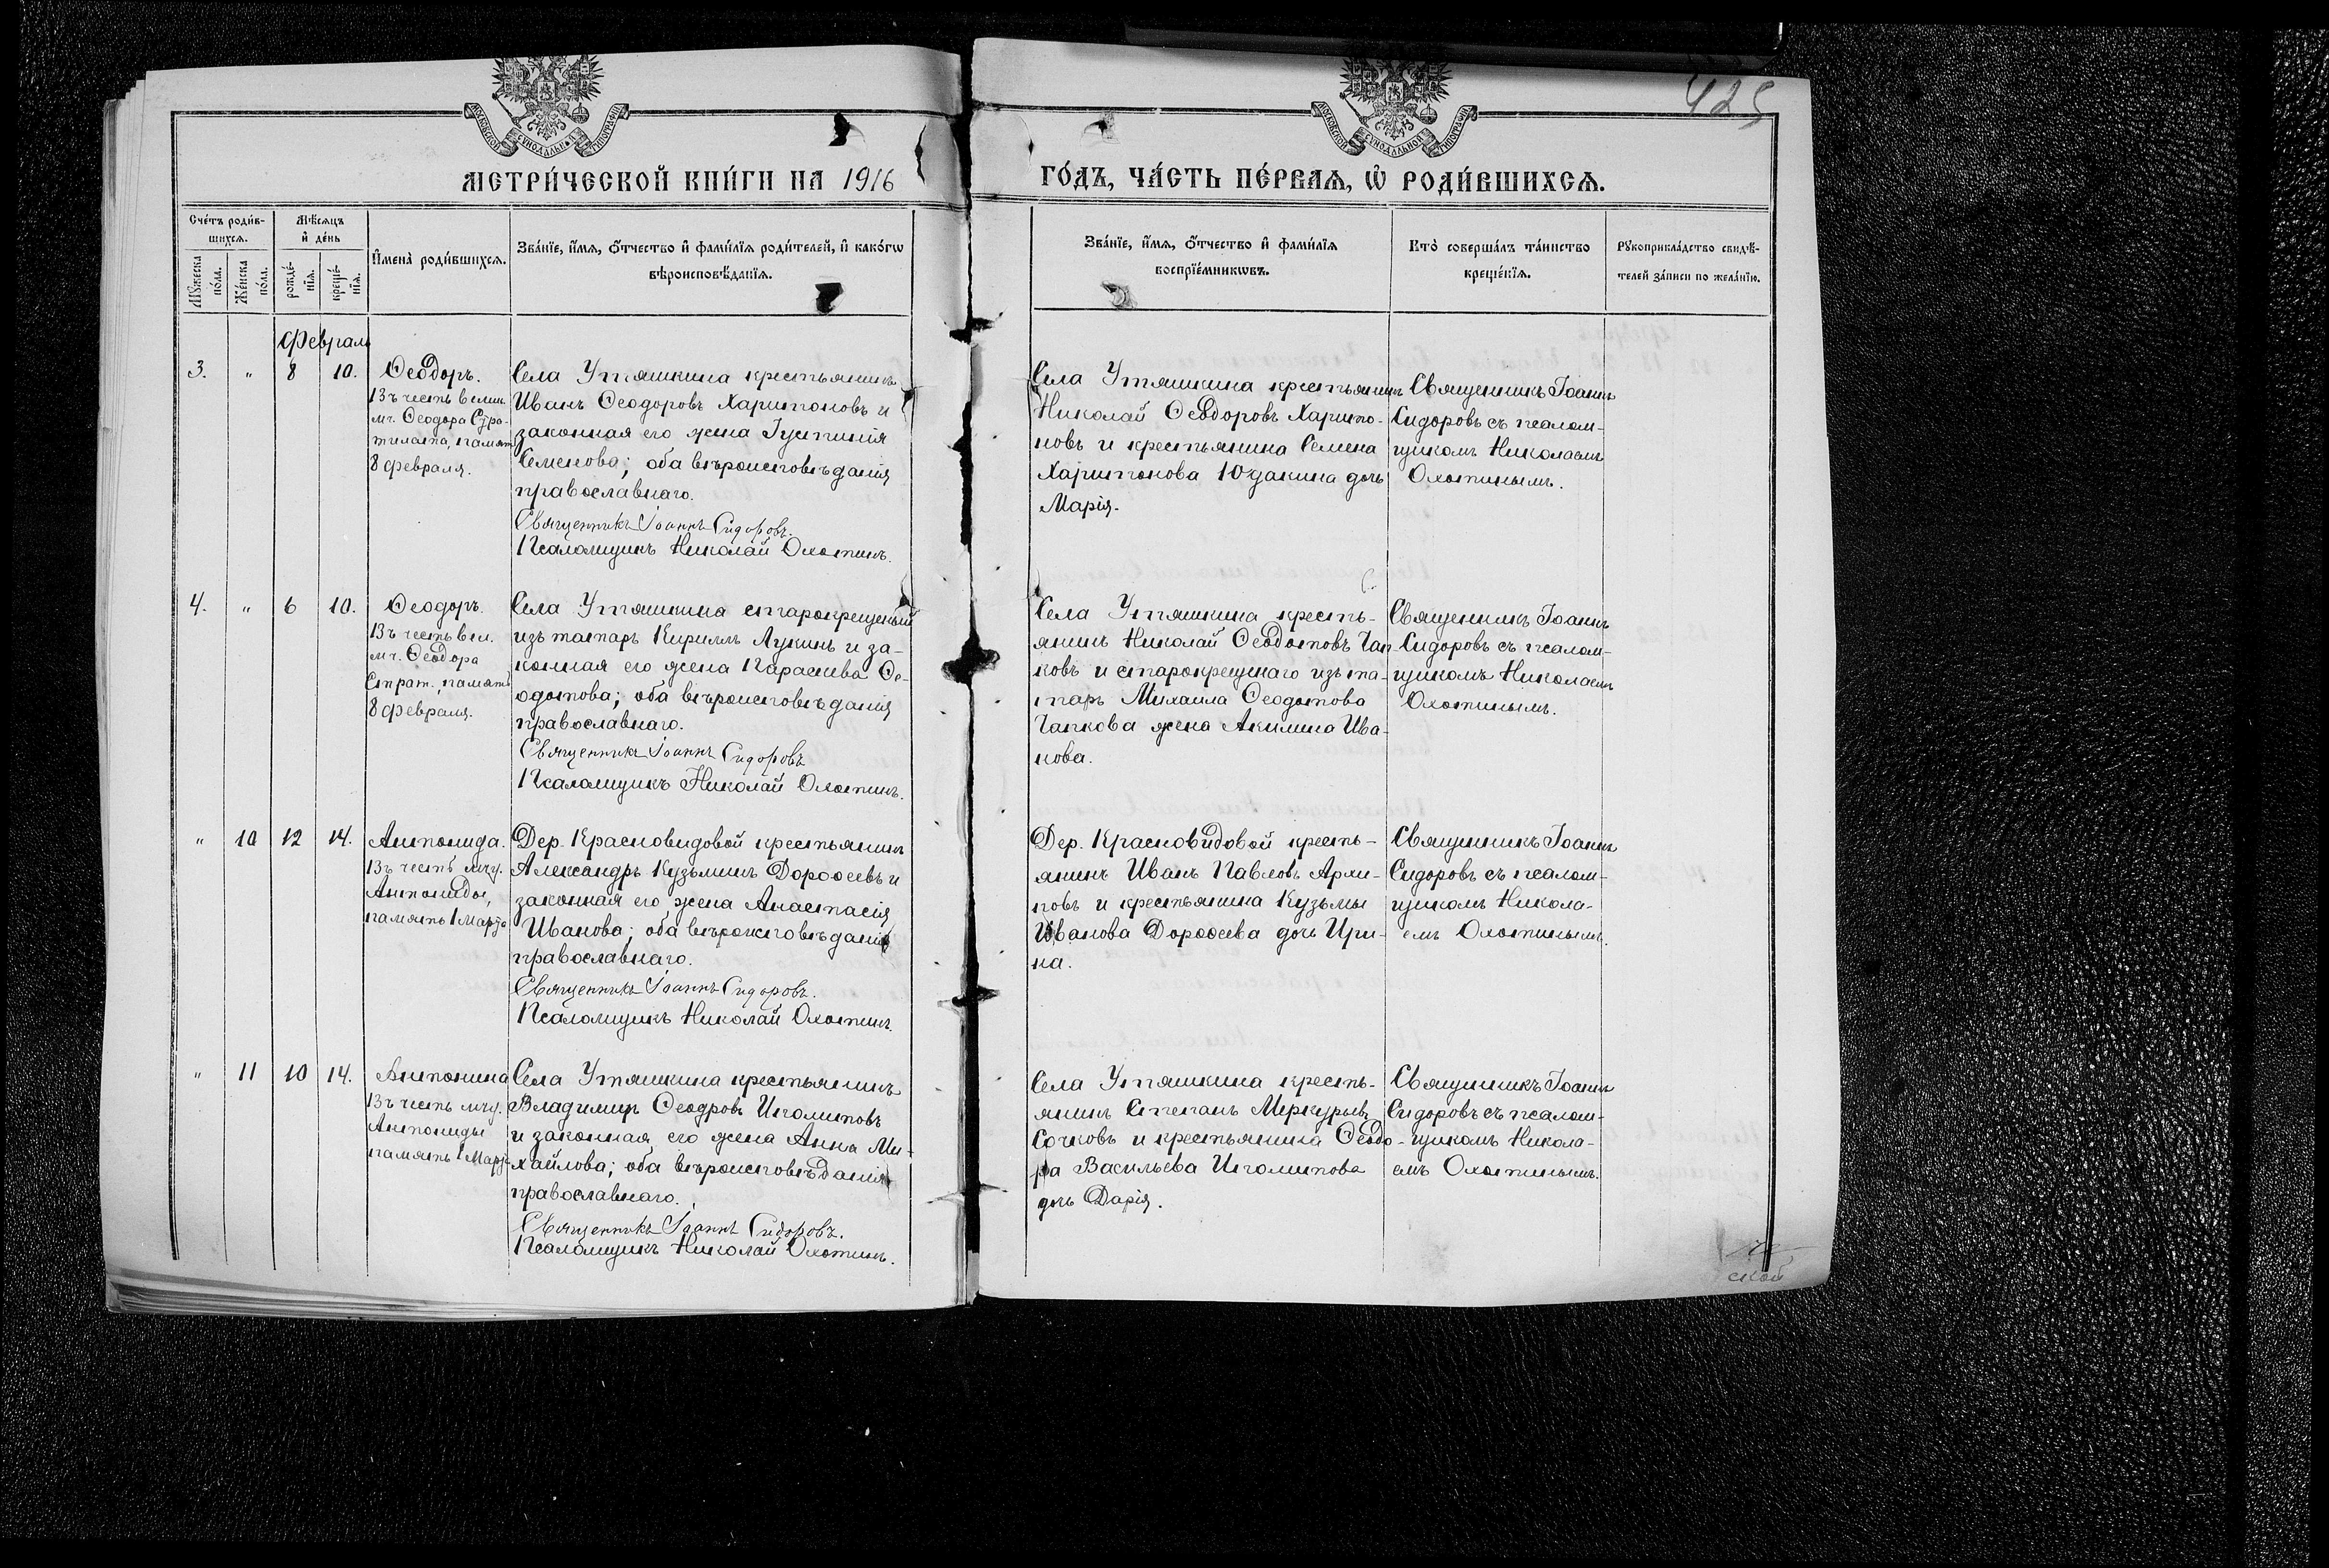 425
МОСКОВСКОЙ СѴНОДАЛЬНОЙ ТИПОГРАФІИ
МОСКОВСКОЙ СѴНОДАЛЬНОЙ ТИПОГРАФІИ
МЕТРИ́ЧЕСКОЙ КНИ́ГИ НА 1916
ГО́ДЪ, ЧА́СТЬ ПЕ́РВАѦ, Ѡ РОДИ́ВШИХСѦ.
Сче́тъ роди́в-
шихсѧ.
Мꙋ́жеска по́ла.
Же́нска по́ла.
Мѣ́сѧцъ
и҆ де́нь
рожде́-нїѧ.
креще́-нїѧ.
И҆мена̀ роди́вшихсѧ.
Зва́нїе, и҆́мѧ, ѻ҆́тчество и҆ фами́лїѧ роди́телей, и҆ како́гѡ
вѣроисповѣ́данїѧ.
Зва́нїе, и҆́мѧ, ѻ҆́тчество и҆ фами́лїѧ
воспрїе́мникѡвъ.
Кто̀ соверша́лъ та́инство
креще́нїѧ.
Рꙋкоприкла́дство свидѣ́-
телей за́писи по жела́нїю.
Февраль
3. " 8 10. Ѳеодоръ.
Въ честь велик.
мч. Ѳеодора Стра-
тилата, память
8 февраля.
Села Утяшкина крестьянинъ
Иванъ Ѳеодоровъ Харитоновъ и
законная его жена Іустинія
Семенова; оба вѣроисповѣданія
православнаго.
Священникъ Іоаннъ Сидоровъ.
Псаломщикъ Николай Охотинъ.
Села Утяшкина крестьянинъ
Николай Ѳеодоровъ Харито-
новъ и крестьянина Семена
Харитонова Юдакина дочь
Марія.
Священникъ Іоаннъ
Сидоровъ съ псалом-
щикомъ Николаемъ
Охотинымъ.
4. " 6 10. Ѳеодоръ.
Въ честь вел.
мч. Ѳеодора
Страт., память
8 февраля.
Села Утяшкина старокрещеный
изъ татаръ Кириллъ Лукинъ и за-
конная его жена Параскева Ѳе-
одотова; оба вѣроисповѣданія
православнаго.
Священникъ Іоаннъ Сидоровъ
Псаломщикъ Николай Охотинъ.
Села Утяшкина кресть-
янинъ Николай Ѳеодотовъ Чап-
ковъ и старокрещенаго изъ та-
таръ Михаила Ѳеодотова
Чапкова жена Акилина Ива-
нова.
Священникъ Іоаннъ
Сидоровъ съ псалом-
щикомъ Николаемъ
Охотинымъ.
" 10 12 14. Антонида.
Въ честь мчц.
Антониды,
память 1 Марта
Дер. Красновидовой крестьянинъ
Александръ Кузьминъ Дороѳеевъ и
законная его жена Анастасія
Иванова; оба вѣроисповѣданія
православнаго.
Священникъ Іоаннъ Сидоровъ.
Псаломщикъ Николай Охотинъ.
Дер. Красновидовой кресть-
янинъ Иванъ Павловъ Архи-
повъ и крестьянина Кузьмы
Иванова Дороѳеева дочь Ири-
на.
Священникъ Іоаннъ
Сидоровъ съ псалом-
щикомъ Никола-
емъ Охотинымъ.
" 11 10 14. Антонина
Въ честь мчц.
Антониды
память 1 Марта
Села Утяшкина крестьянинъ
Владимиръ Ѳеодровъ Иполитовъ
и законная его жена Анна Ми-
хайлова; оба вѣроисповѣданія
православнаго.
Священникъ Іоаннъ Сидоровъ.
Псаломщикъ Николай Охотинъ.
Села Утяшкина кресть-
янинъ Степанъ Меркурьевъ
Сочковъ и крестьянина Ѳеодо-
ра Васильева Иполитова
дочь Дарія.
Священникъ Іоаннъ
Сидоровъ съ псалом-
щикомъ Никола-
емъ Охотинымъ.
ской